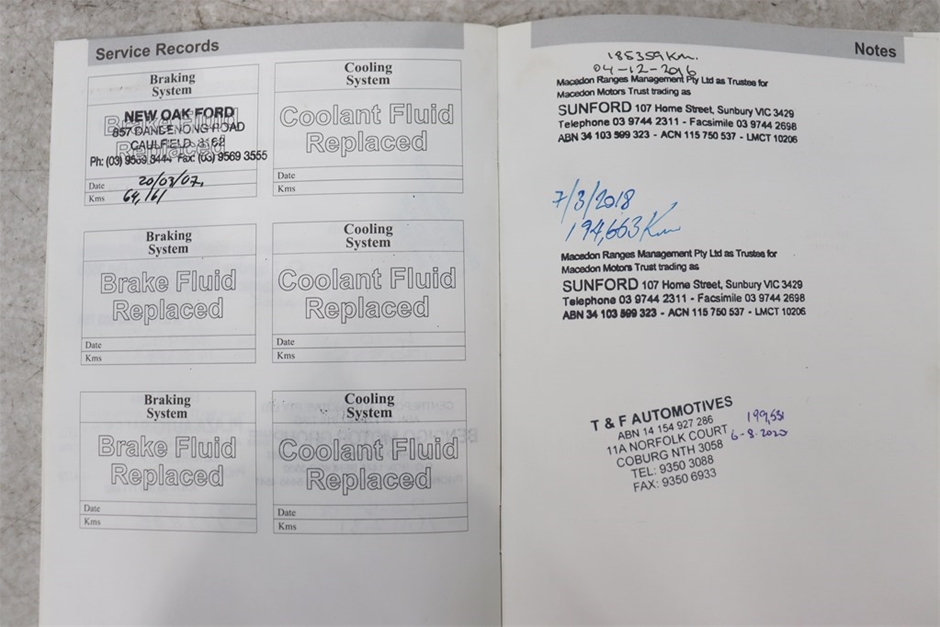 Service Records
Braking
System
Brake Fluid
Replaced
NEW OAK FORD
857 DANDENONG ROAD
CAULFIELD 3162
Ph: (03) 9569 3444 Fax: (03) 9569 3555
Date 20/03/07,
Kms 64,161
Cooling
System
Coolant Fluid
Replaced
Date
Kms
Braking
System
Brake Fluid
Replaced
Date
Kms
Cooling
System
Coolant Fluid
Replaced
Date
Kms
Braking
System
Brake Fluid
Replaced
Date
Kms
Cooling
System
Coolant Fluid
Replaced
Date
Kms
Notes
185359Km.
04-12-2016
Macedon Ranges Management Pty Ltd as Trustee for
Macedon Motors Trust trading as
SUNFORD 107 Home Street, Sunbury VIC 3429
Telephone 03 9744 2311 - Facsimile 03 9744 2698
ABN 34 103 599 323 - ACN 115 750 537 - LMCT 10206
7/3/2018
194,663Km
Macedon Ranges Management Pty Ltd as Trustee for
Macedon Motors Trust trading as
SUNFORD 107 Home Street, Sunbury VIC 3429
Telephone 03 9744 2311 - Facsimile 03 9744 2698
ABN 34 103 599 323 - ACN 115 750 537 - LMCT 10206
T & F AUTOMOTIVES
ABN 14 154 927 286
11A NORFOLK COURT
COBURG NTH 3058
TEL: 9350 3088
FAX: 9350 6933
199,551
6-8-2020